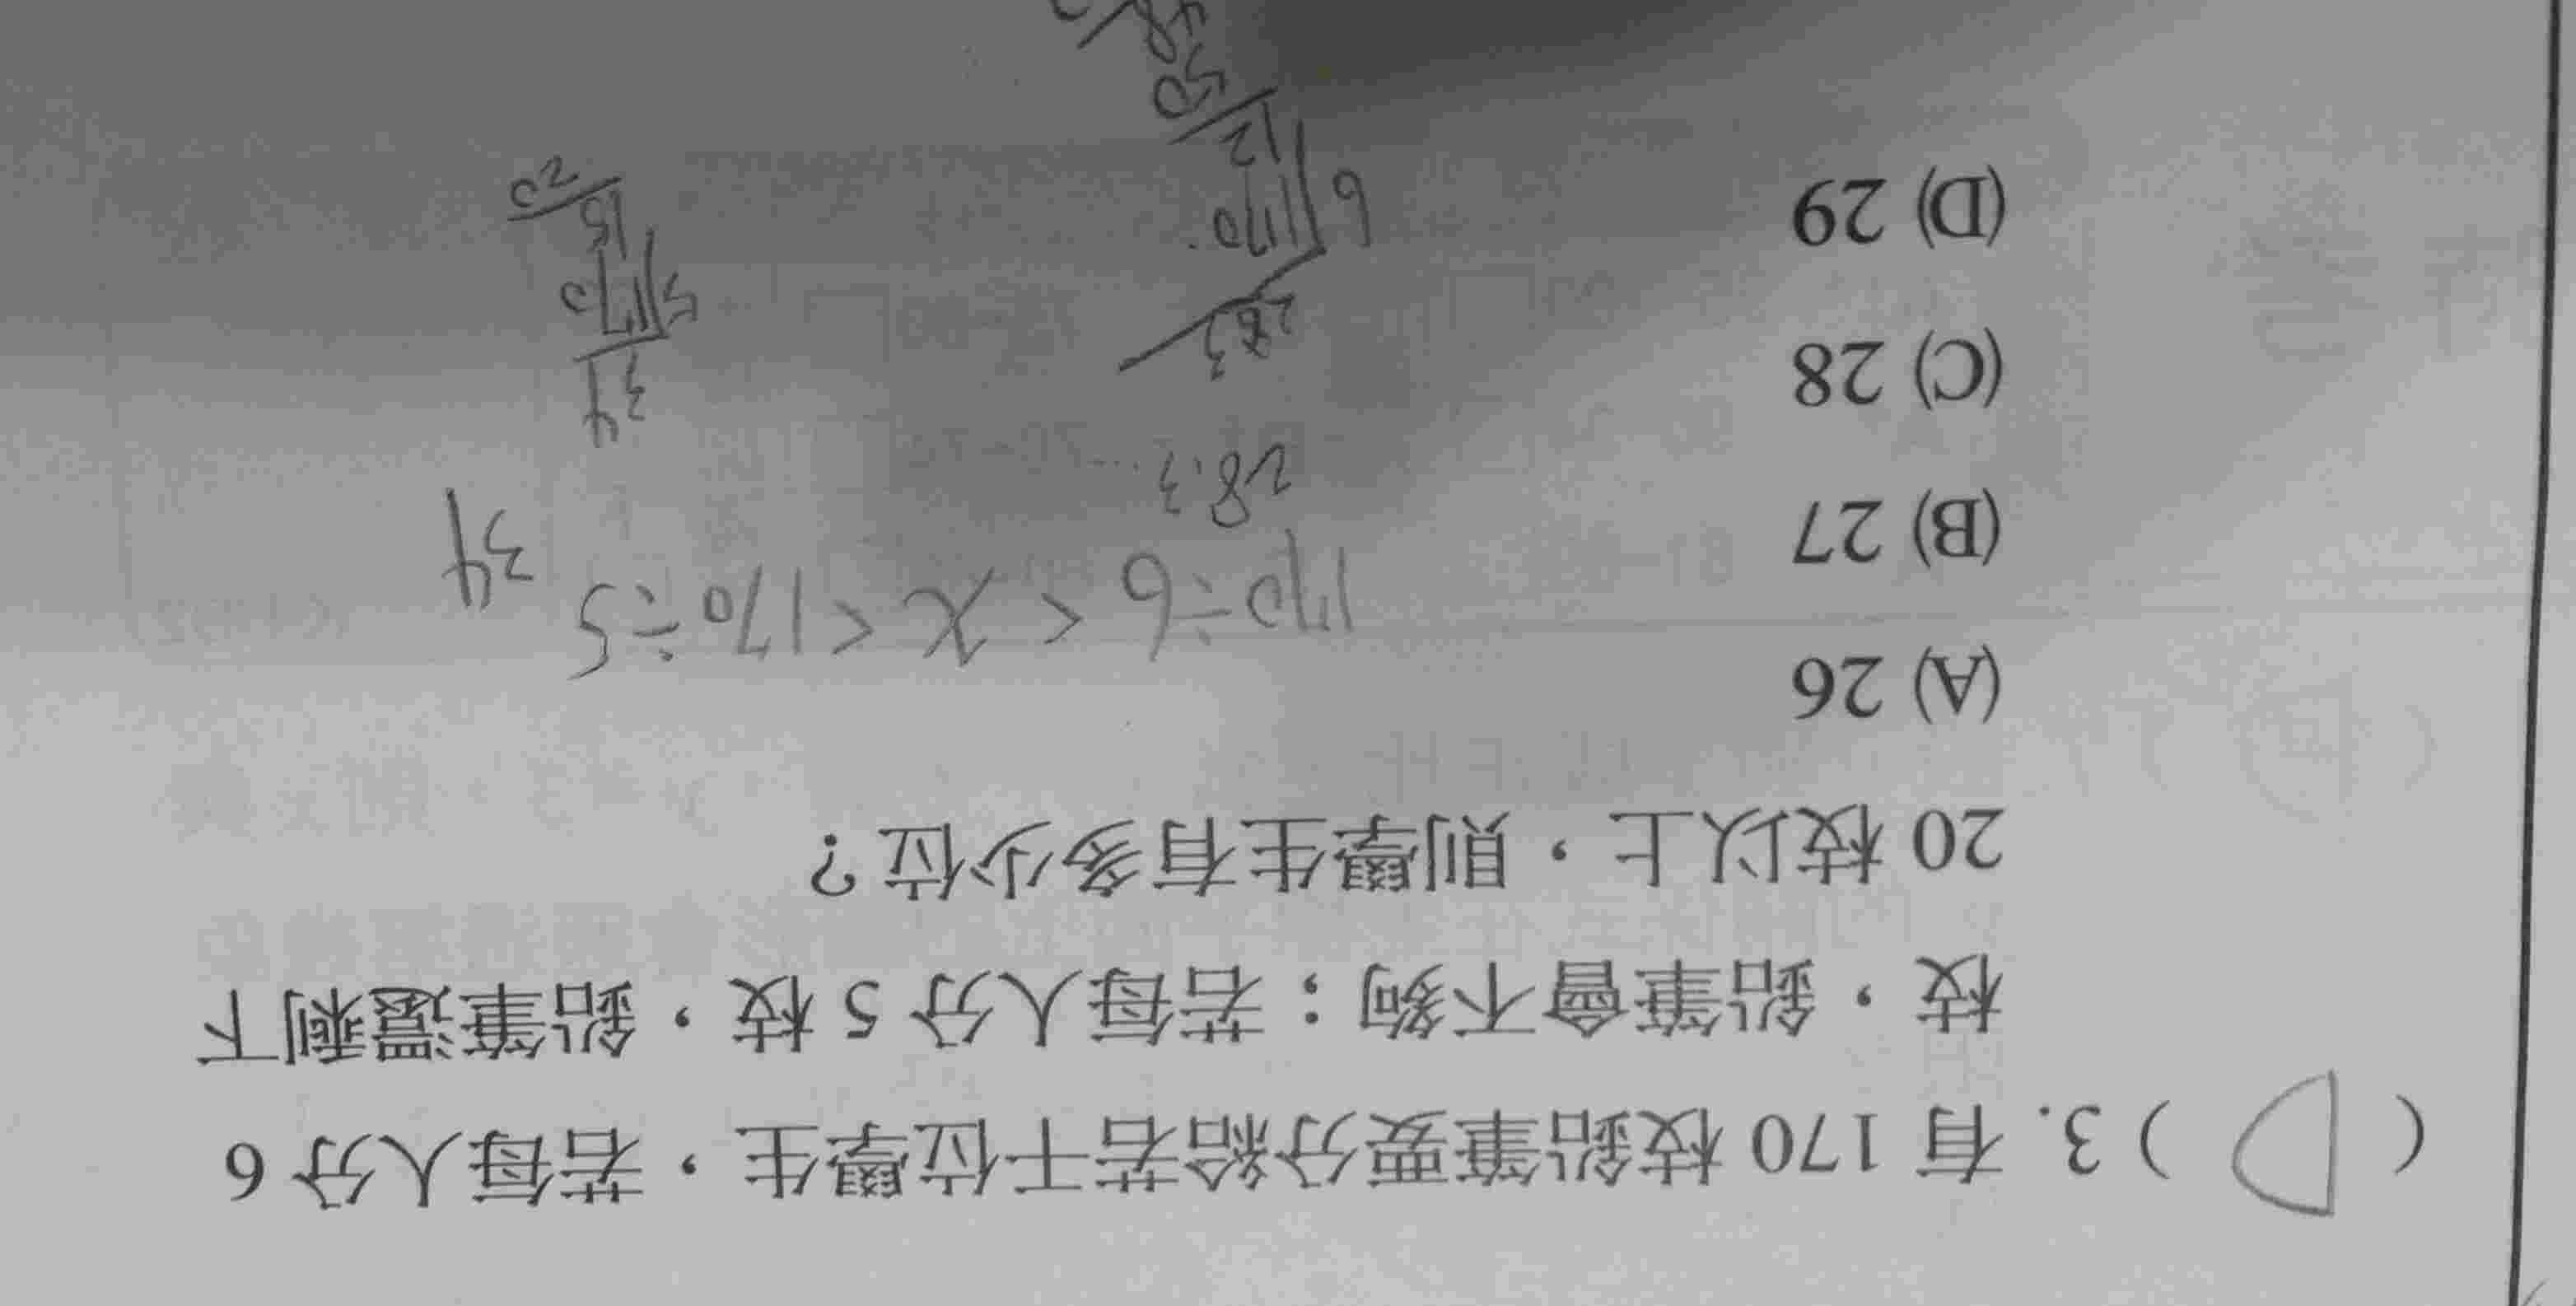 ( D ) 3. 有 170 枝鉛筆要分給若干位學生，若每人分 6
枝，鉛筆會不夠；若每人分 5 枝，鉛筆還剩下
20 枝以上，則學生有多少位？
(A) 26
(B) 27
(C) 28
(D) 29
170÷6 < x < 170÷5
28.3...
34
283
6 170.
12
50
34
5 170
15
20